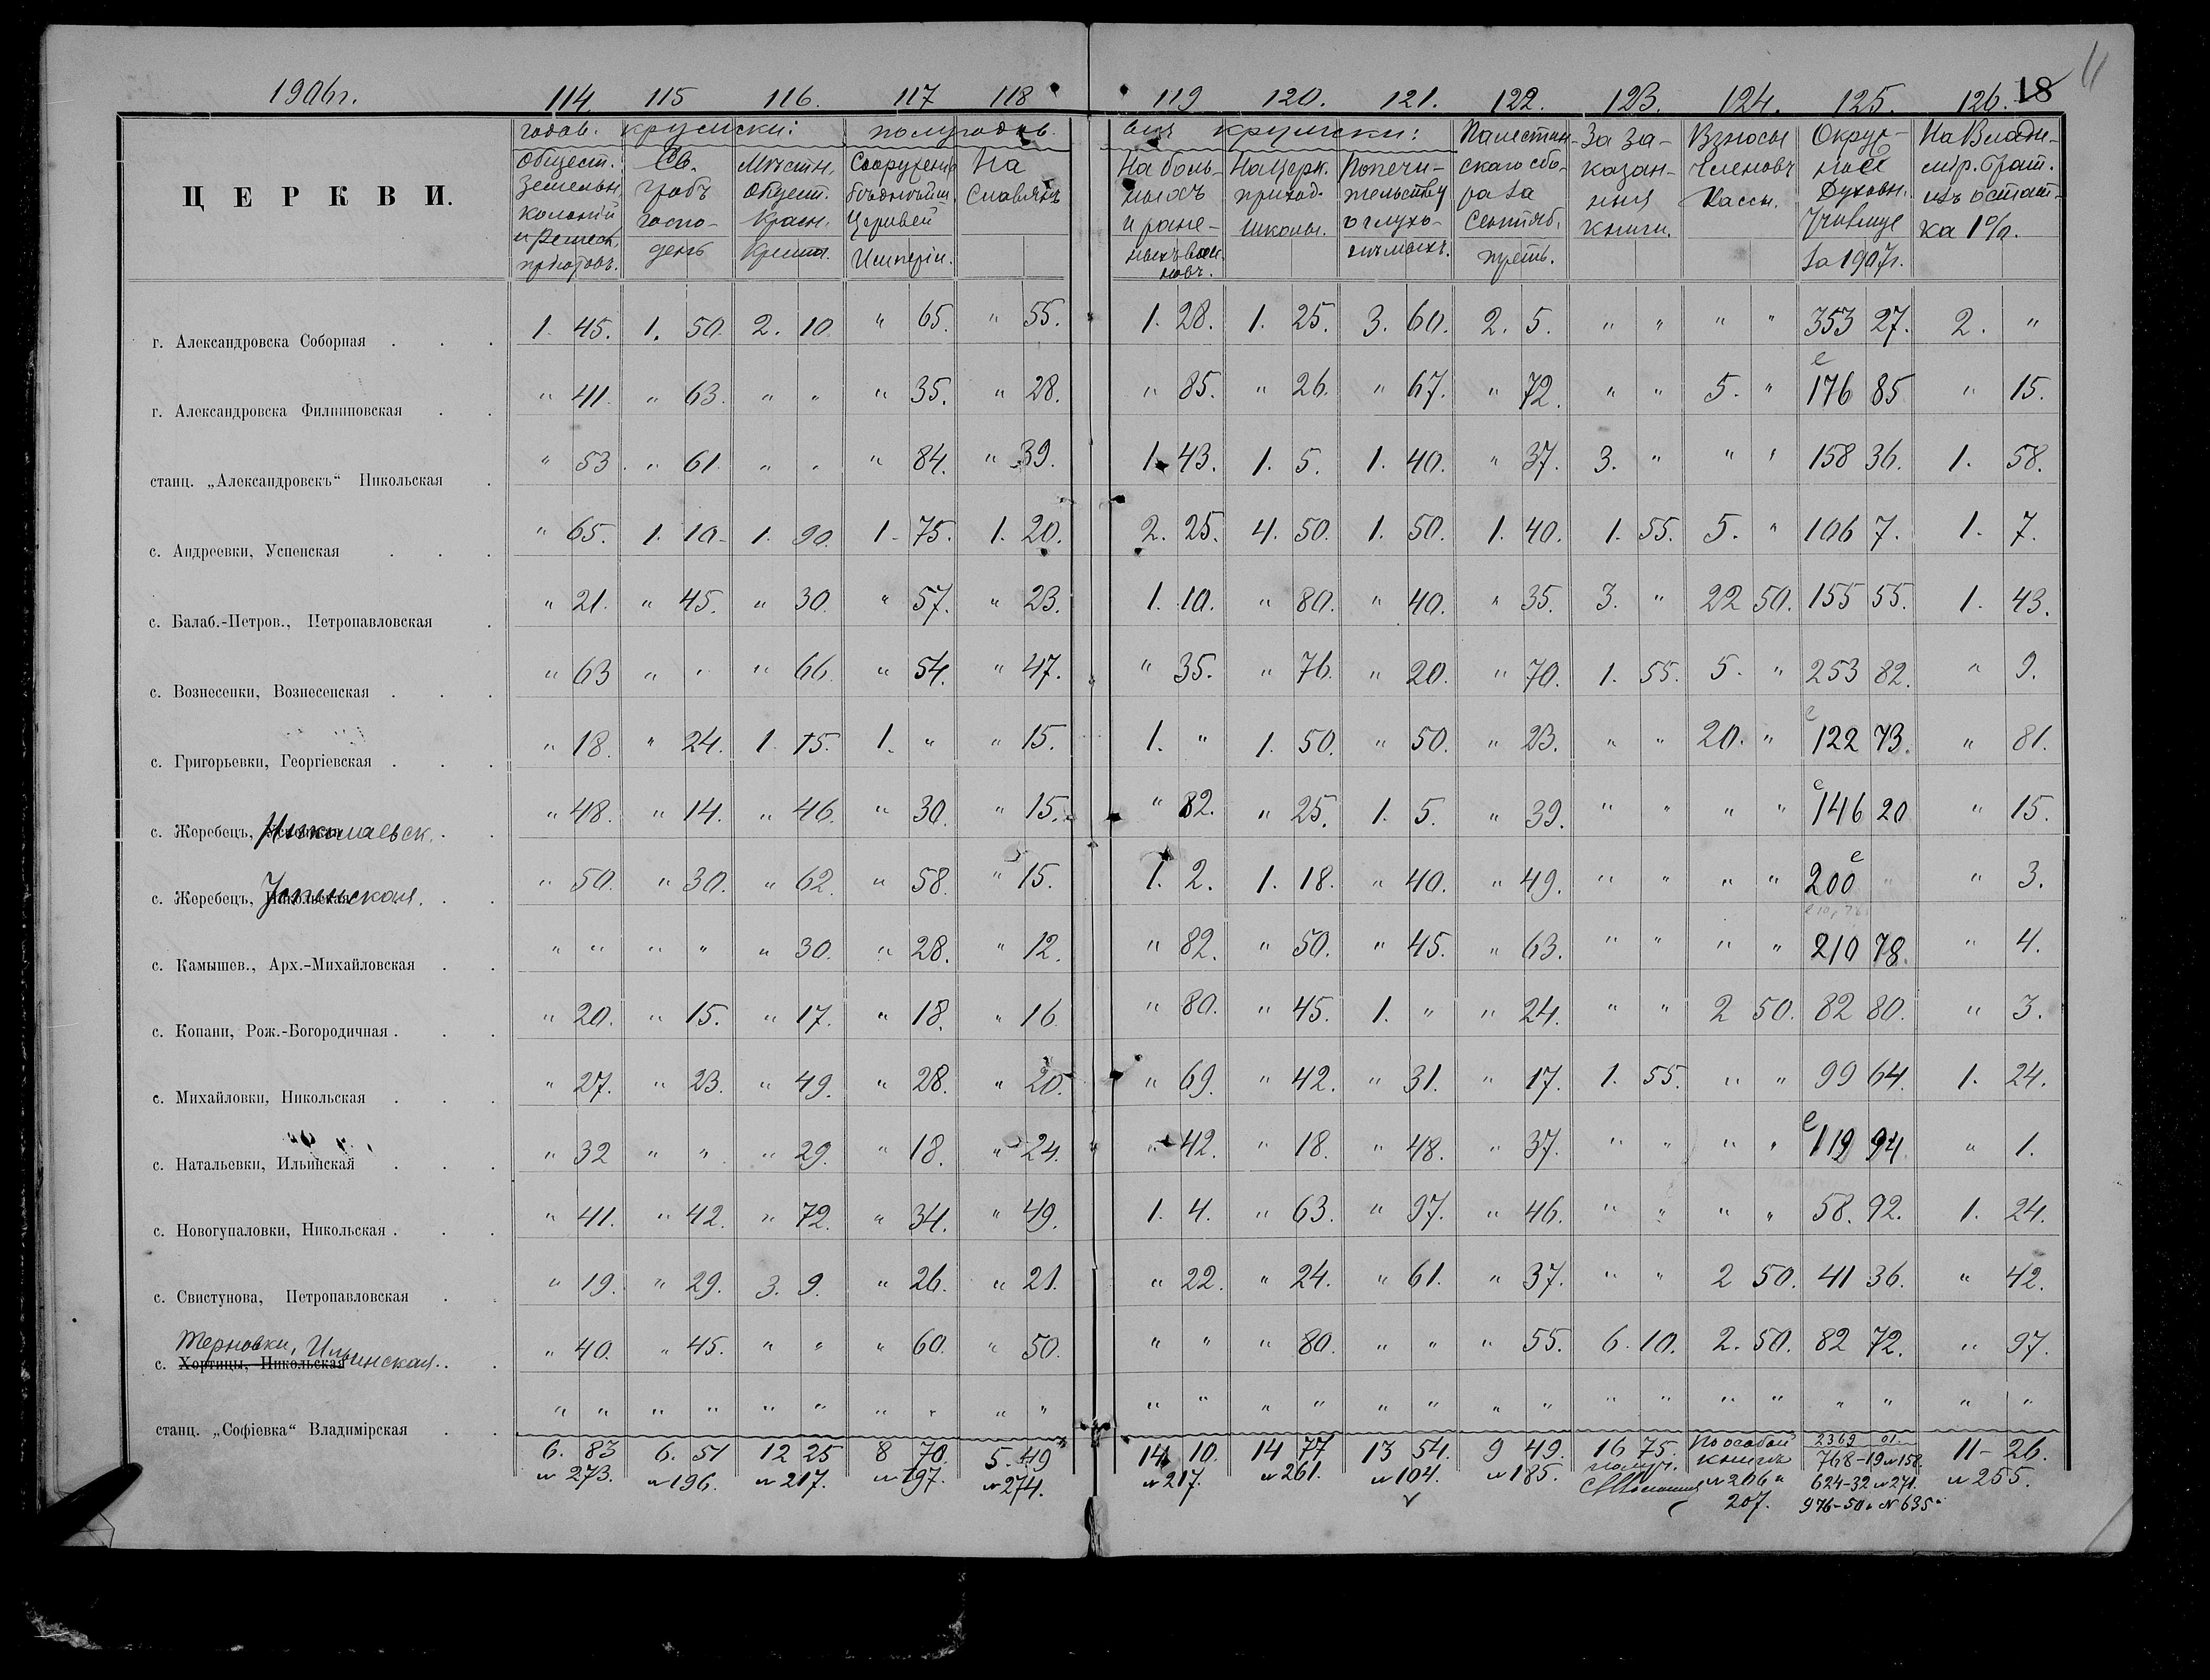 1906г. 114 115 116. 117 118 119 120. 121. 122. 123. 124. 125. 126. 18
годов. кружки: полугодов. вых кружки:
ЦЕРКВИ.
Общест. земельн. колоній и ремесл. пріютовъ.
Св. гробъ Господень
Мѣстн. Общест. Красн. Креста.
Сооруженіе бѣднѣйш. Церквей Имперіи.
На Славянъ
На больныхъ и раненыхъ воиновъ.
На церк. приход. школы.
Попечительству о глухонѣмыхъ.
Палестинскаго сбора за Сентяб. треть.
За заказанныя книги.
Взносы Членовъ Кассы.
Окружное Духовн. Училище за 1907г.
На Влади- мір. брат. изъ остатка 1%.
г. Александровска Соборная 1. 45. 1. 50. 2. 10 " 65. " 55. 1. 28. 1. 25. 3. 60. 2. 5. " " " " 353 27. 2. "
г. Александровска Филипповская " 41. " 63. " " " 35. " 28. " 85. " 26. " 67. " 72. " " 5. " 176 85 " 15.
станц. „Александровскъ“ Никольская " 53. " 61. " " " 84. " 39. 1. 43. 1. 5. 1. 40. " 37. 3. " " " 158 36. 1. 58.
с. Андреевки, Успенская " 65. 1. 10. 1. 90. 1. 75. 1. 20. 2. 25. 4. 50. 1. 50. 1. 40. 1. 55. 5. " 106 7. 1. 7.
с. Балаб.-Петров., Петропавловская " 21. " 45. " 30. " 57. " 23. 1. 10. " 80. " 40. " 35. 3. " 22 50. 155 55. 1. 43.
с. Вознесенки, Вознесенская " 63 " " " 66. " 54. " 47. " 35. " 76. " 20. " 70. 1. 55. 5. " 253 82. " 9.
с. Григорьевки, Георгіевская " 18. " 24. 1. 15. 1. " " 15. 1. " 1. 50. " 50. " 23. " " 20. " 122 73. " 81.
с. Жеребецъ, Николаевск. " 48. " 14. " 46. " 30. " 15. " 82. " 25. 1. 5. " 39. " " " " 146 20 " 15.
с. Жеребецъ, Никольская Успенская. " 50. " 30. " 62. " 58. " 15. 1. 2. 1. 18. " 40. " 49. " " " " 200 " " 3.
с. Камышев., Арх.-Михайловская " " " " " 30. " 28. " 12. " 82. " 50. " 45. " 63. " " " " 210 78. " 4.
с. Копани, Рож.-Богородичная " 20. " 15. " 17. " 18. " 16 " 80. " 45. 1. " " 24. " " 2 50. 82 80. " 3.
с. Михайловки, Никольская " 27. " 23. " 49. " 28. " 20. " 69. " 42. " 31. " 17. 1. 55. " " 99 64. 1. 24.
с. Натальевки, Ильинская " 32 " " " 29. " 18. " 24. " 42. " 18. " 48. " 37. " " " " 119 94 " 1.
с. Новогупаловки, Никольская " 41. " 42. " 72. " 34. " 49. 1. 4. " 63. " 97. " 46. " " " " 58. 92. 1. 24.
с. Свистунова, Петропавловская " 19. " 29. 3. 9. " 26. " 21. " 22. " 24. " 61. " 37. " " 2 50. 41 36. " 42.
с. Хортицы, Никольская Терновки, Ильинская. " 40. " 45. " " " 60. " 50. " " " 80. " " " 55. 6. 10. 2. 50. 82 72. " 97.
станц. „Софіевка“ Владимірская " " " " " " " " " " " " " " " " " " " " " " " " " "
6. 83 6. 51 12 25 8 70. 5. 49 14. 10. 14 77 13 54. 9 49. 16 75. По особой книгѣ 2369 01. 11- 26.
№ 273. № 196. № 217. № 197. № 274. № 217. № 261. № 104. № 185. № 206 и 207. 768-19 № 158. № 255.
624-32 № 271.
976-50 № 635